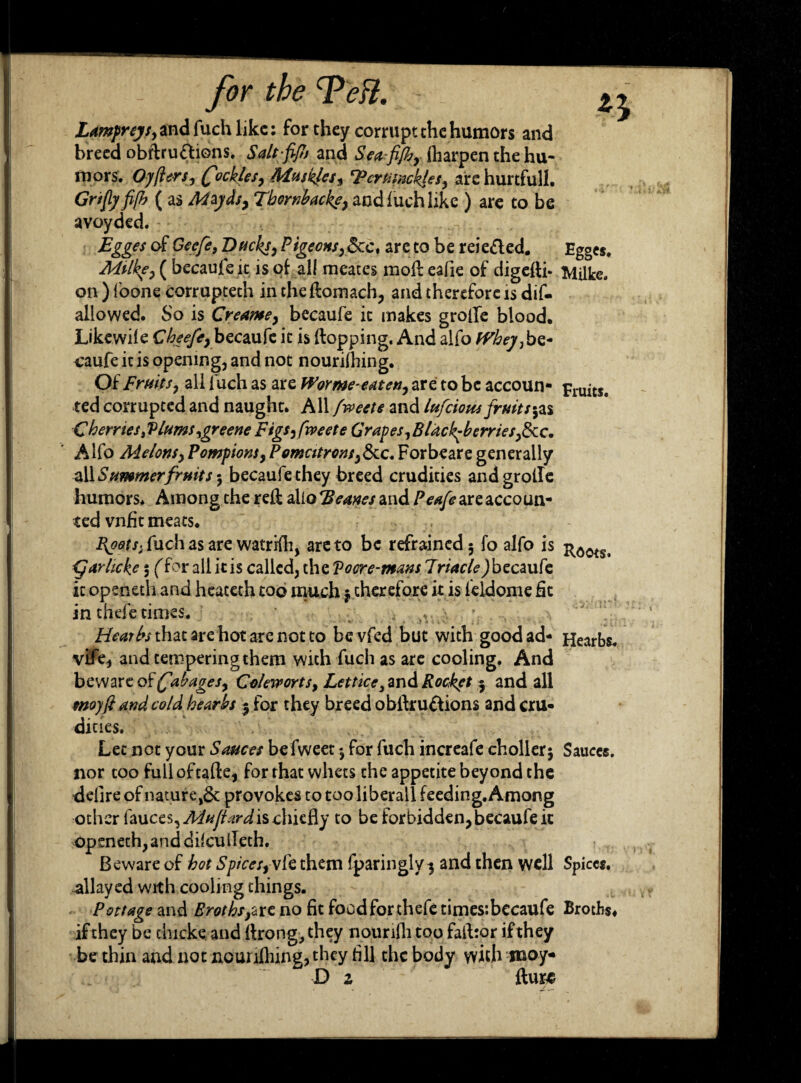 for the Pest. 23
Lampreys, and such like: for they corrupt the humors and
breed obstructions. Salt-fish and Sea-fish, sharpen the hu-
mors. Oysters, Cockles, Muskles, Periwinckles, are hurtfull.
Grisly fish ( as Mayds, Thornbacke, and such like ) are to be
avoyded.
Egges of Geese, Ducks, Pigeons, &c, are to be rejected. Egges.
Milke, ( because it is of all meates most easie of digesti- Milke.
on ) soone corrupteth in the stomach, and therefore is dis-
allowed. So is Creame, because it makes grosse blood.
Likewise Cheese, because it is stopping. And also Whey, be-
cause it is opening, and not nourishing.
Of Fruits, all such as are Worme-eaten, are to be accoun- Fruits.
ted corrupted and naught. All sweete and luscious fruits; as
Cherries, Plums, greene Figs, sweete Grapes, Black-berries, &c.
Also Melons, Pompions, Pomcitrons, &c. Forbeare generally
all Summer fruits; because they breed crudities and grosse
humors. Among the rest also Beanes and Pease are accoun-
ted vnfit meats.
Roots, such as are watrish, are to be refrained; so also is Roots.
Garlicke; (for all it is called, the Poore-mans Triacle) because
it openeth and heateth too much; therefore it is seldome fit
in these times.
Hearbs that are hot are not to be vsed but with good ad- Hearbs.
vise, and tempering them with such as are cooling. And
beware of Cabages, Coleworts, Lettice, and Rocket; and all
moyst and cold hearbs; for they breed obstructions and cru-
dities.
Let not your Sauces be sweet; for such increase choller; Sauces.
nor too full of taste, for that whets the appetite beyond the
desire of nature, & provokes to too liberall feeding. Among
other sauces, Mustard is chiefly to be forbidden, because it
openeth, and discusseth.
Beware of hot Spices, vse them sparingly; and then well Spices.
allayed with cooling things.
Pottage and Broths, are no fit food for these times: because Broths.
if they be thicke and strong, they nourish too fast: or if they
be thin and not nourishing, they fill the body with moy-
D 2 sture